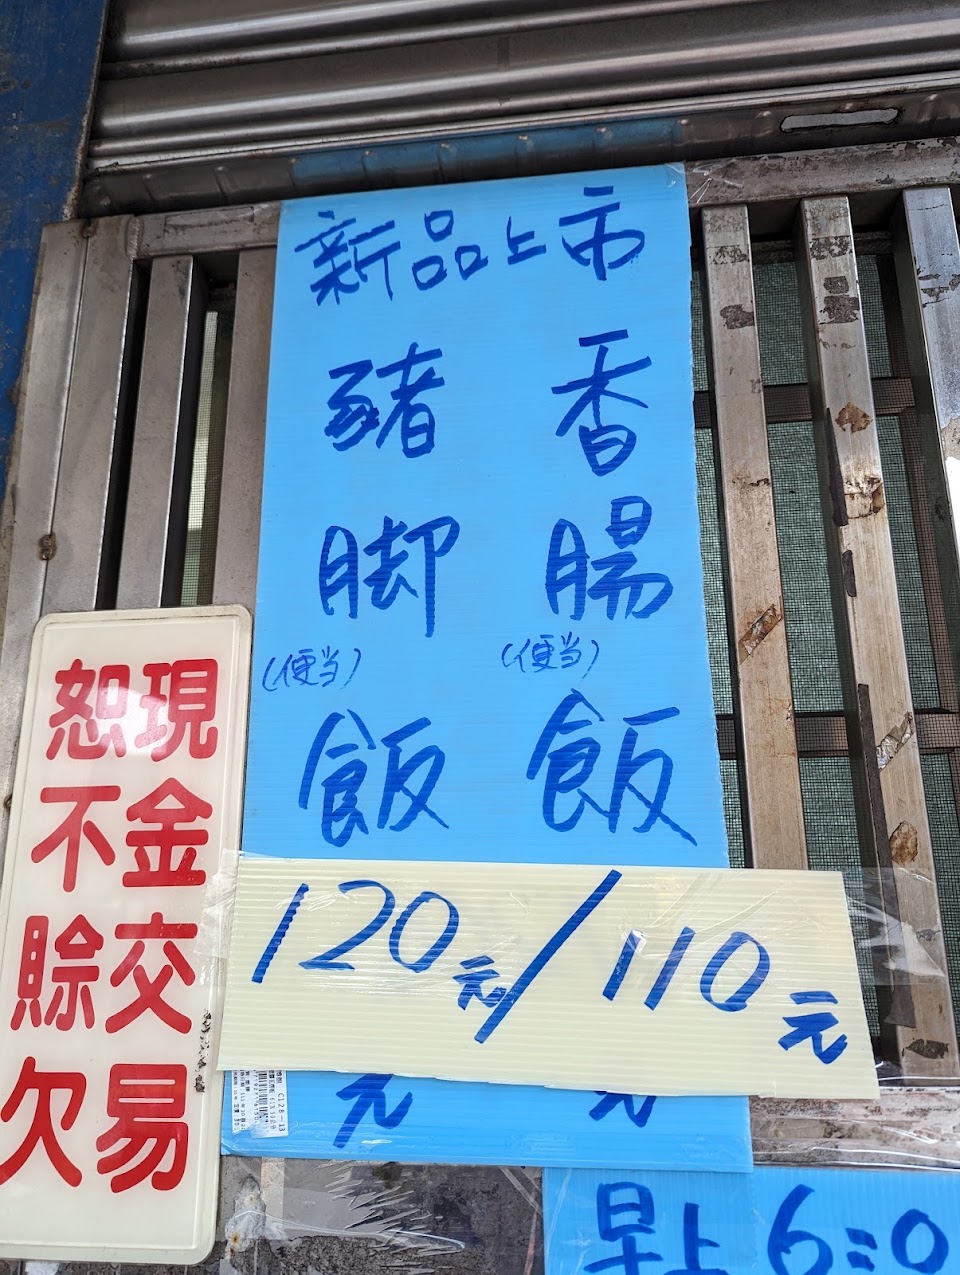 新品上市
香腸(便当)飯
豬脚(便当)飯
120元/110元
元
元
現金交易
恕不賒欠
C128-13
早上6:0